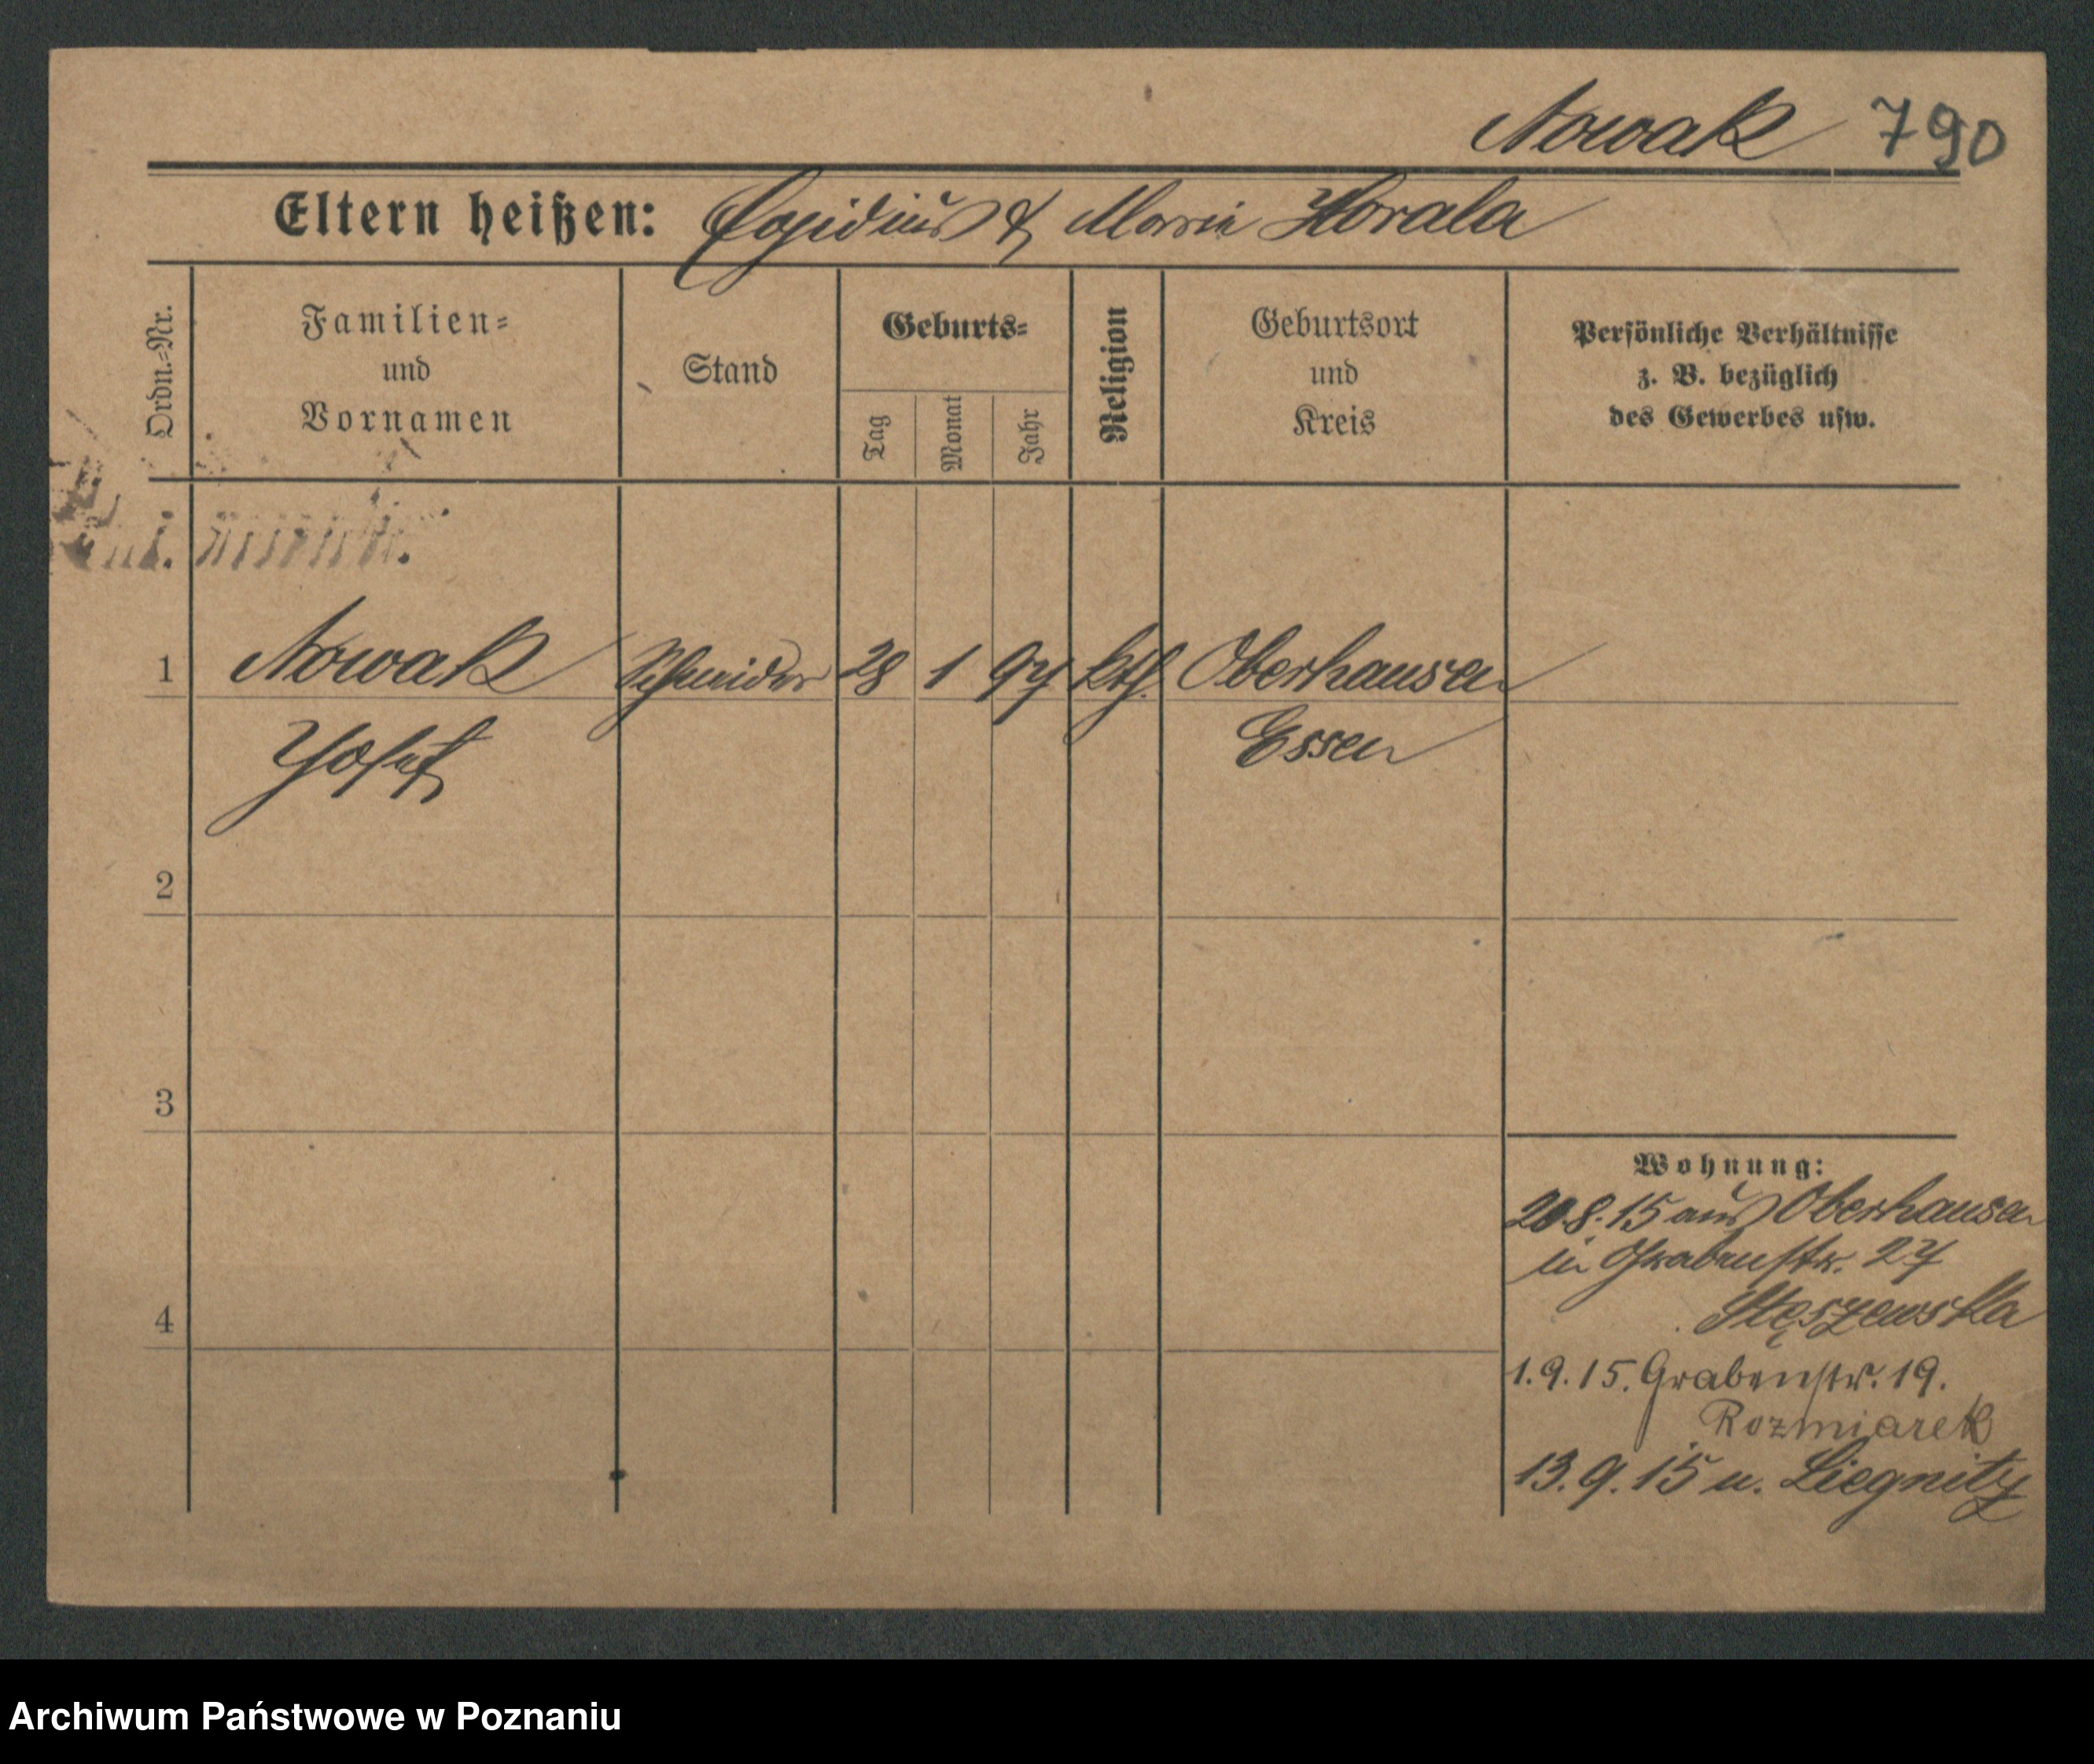 Nowak 790
Eltern heißen: Egidius & Marie Horala
Ordn.-Nr.
Familien-
und
Vornamen
Stand
Geburts-
Tag
Monat
Jahr
Religion
Geburtsort
und
Kreis
Persönliche Verhältnisse
z. B. bezüglich
des Gewerbes usw.
1 Nowak Schneider 28 1 97 kth. Oberhausen
Josef Essen
2
3
4
Wohnung:
20.8.15 aus Oberhausen
in Grabenstr. 27
Stęszewska
1.9.15. Grabenstr. 19.
Rozmiarek
13.9.15 n. Liegnitz
Archiwum Państwowe w Poznaniu